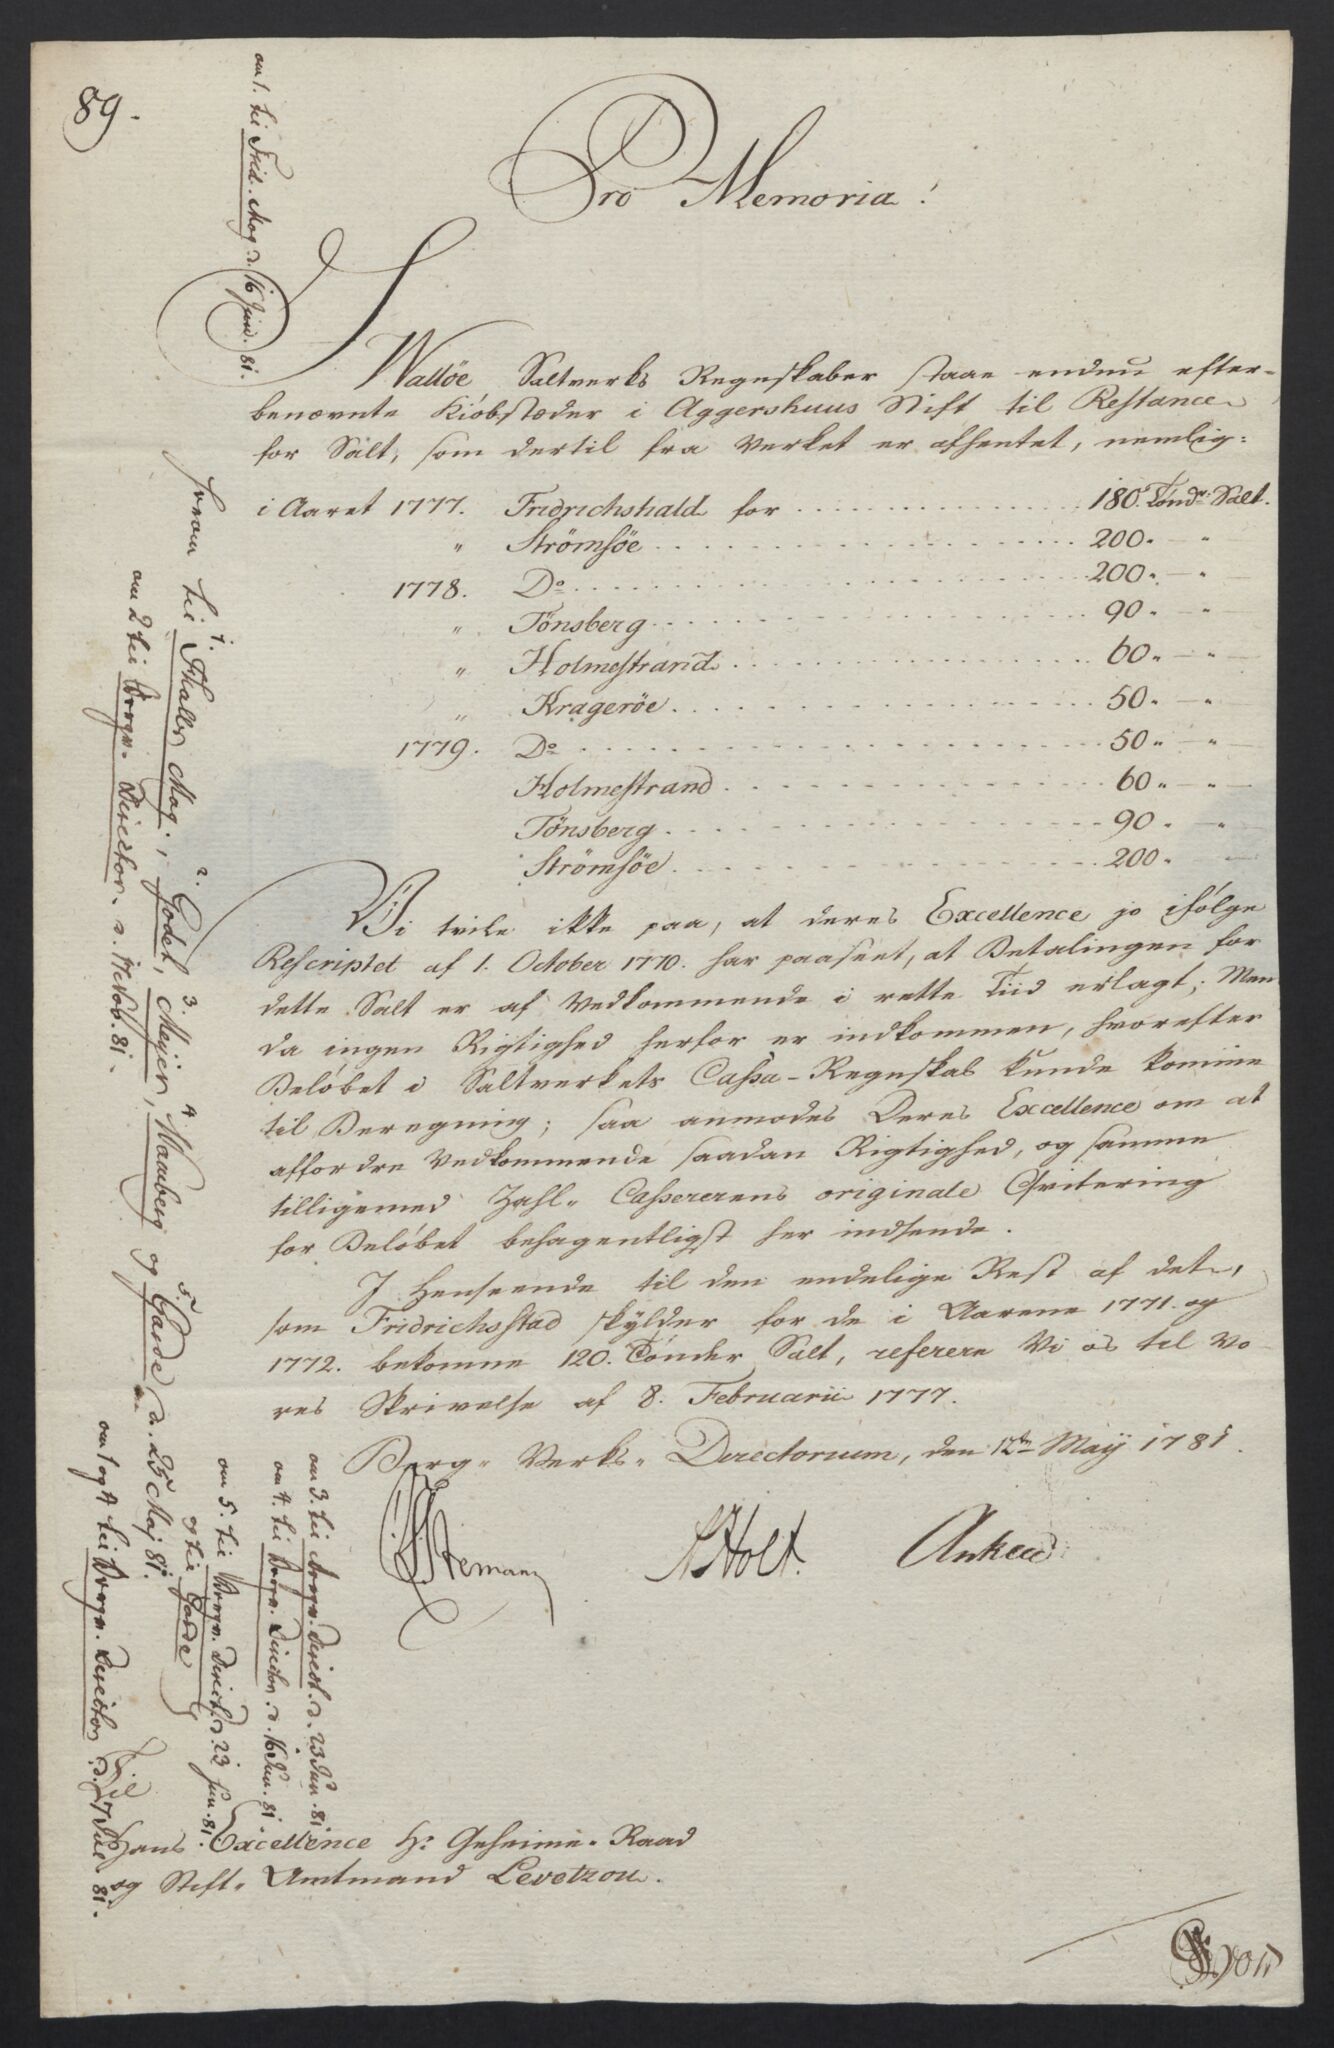 89.
Pro Memoria!
I Walløe Saltverks Regnskaber staae endnu efter-
benævnte Kiøbstæder i Aggershuus Stift til Restance
for Salt, som dertil fra Verket er afhentet, nemlig:
i Aaret 1777. Fridrichshald for 180. Tønd: Salt.
" Strömsöe 200. — "
1778. Do 200. — "
" Tönsberg 90. — "
" Holmestrand 60. — "
" Kragerøe 50. — "
1779. Do 50. — "
Holmestrand 60. — "
Tönsberg 90. — "
Strömsöe 200. — "
Vi tvile ikke paa, at deres Excellence jo ifölge
Rescriptet af 1. October 1770. har paaseet, at Betalingen for
dette Salt er af Vedkommende i rette Tiid erlagt; Men
da ingen Rigtighed herfor er indkommen, hvorefter
Beløbet i Saltverkets Cassa-Regnskab kunde komme
til Beregning; saa anmodes Deres Excellence om at
affordre Vedkommende saadan Rigtighed, og samme
tilligemed Zahl-Cassererens originale Qvitering
for Beløbet behagentligst her indsende.
I Henseende til den endelige Rest af det,
som Fridrichsstad skylder for de i Aarene 1771. og
1772. bekomne 120. Tønder Salt, referere Vi os til Vo-
res Skrivelse af 8. Februarii 1777.
Berg-Verks-Directorium, den 12te Maÿ 1781.
Stemann AHolt. Anker
Til
Hans Excellence Hr Geheime-Raad
og Stift-Amtmand Levetzou.
om 1. til Frid. Mag. d. 16 Juni. 81.
hvorom til 1. Fhalds Mag., 2. Godet, 3. Meyer, 4. Mauberg og 5. Garde d. 25 Maj 81.
om 2 til Bergv. Director. d. 17 Nov. 81.
om 3. til Bergv. Direct. d. 23 Jun. 81.
om 4. til Bergv. Direction. d. 16 Jun. 81.
om 5. til Bergv. Direct. d. 23 Jun. 81.
og til Garde
om 1 og 4 til Bergv. Director d. 27 Jul. 81.